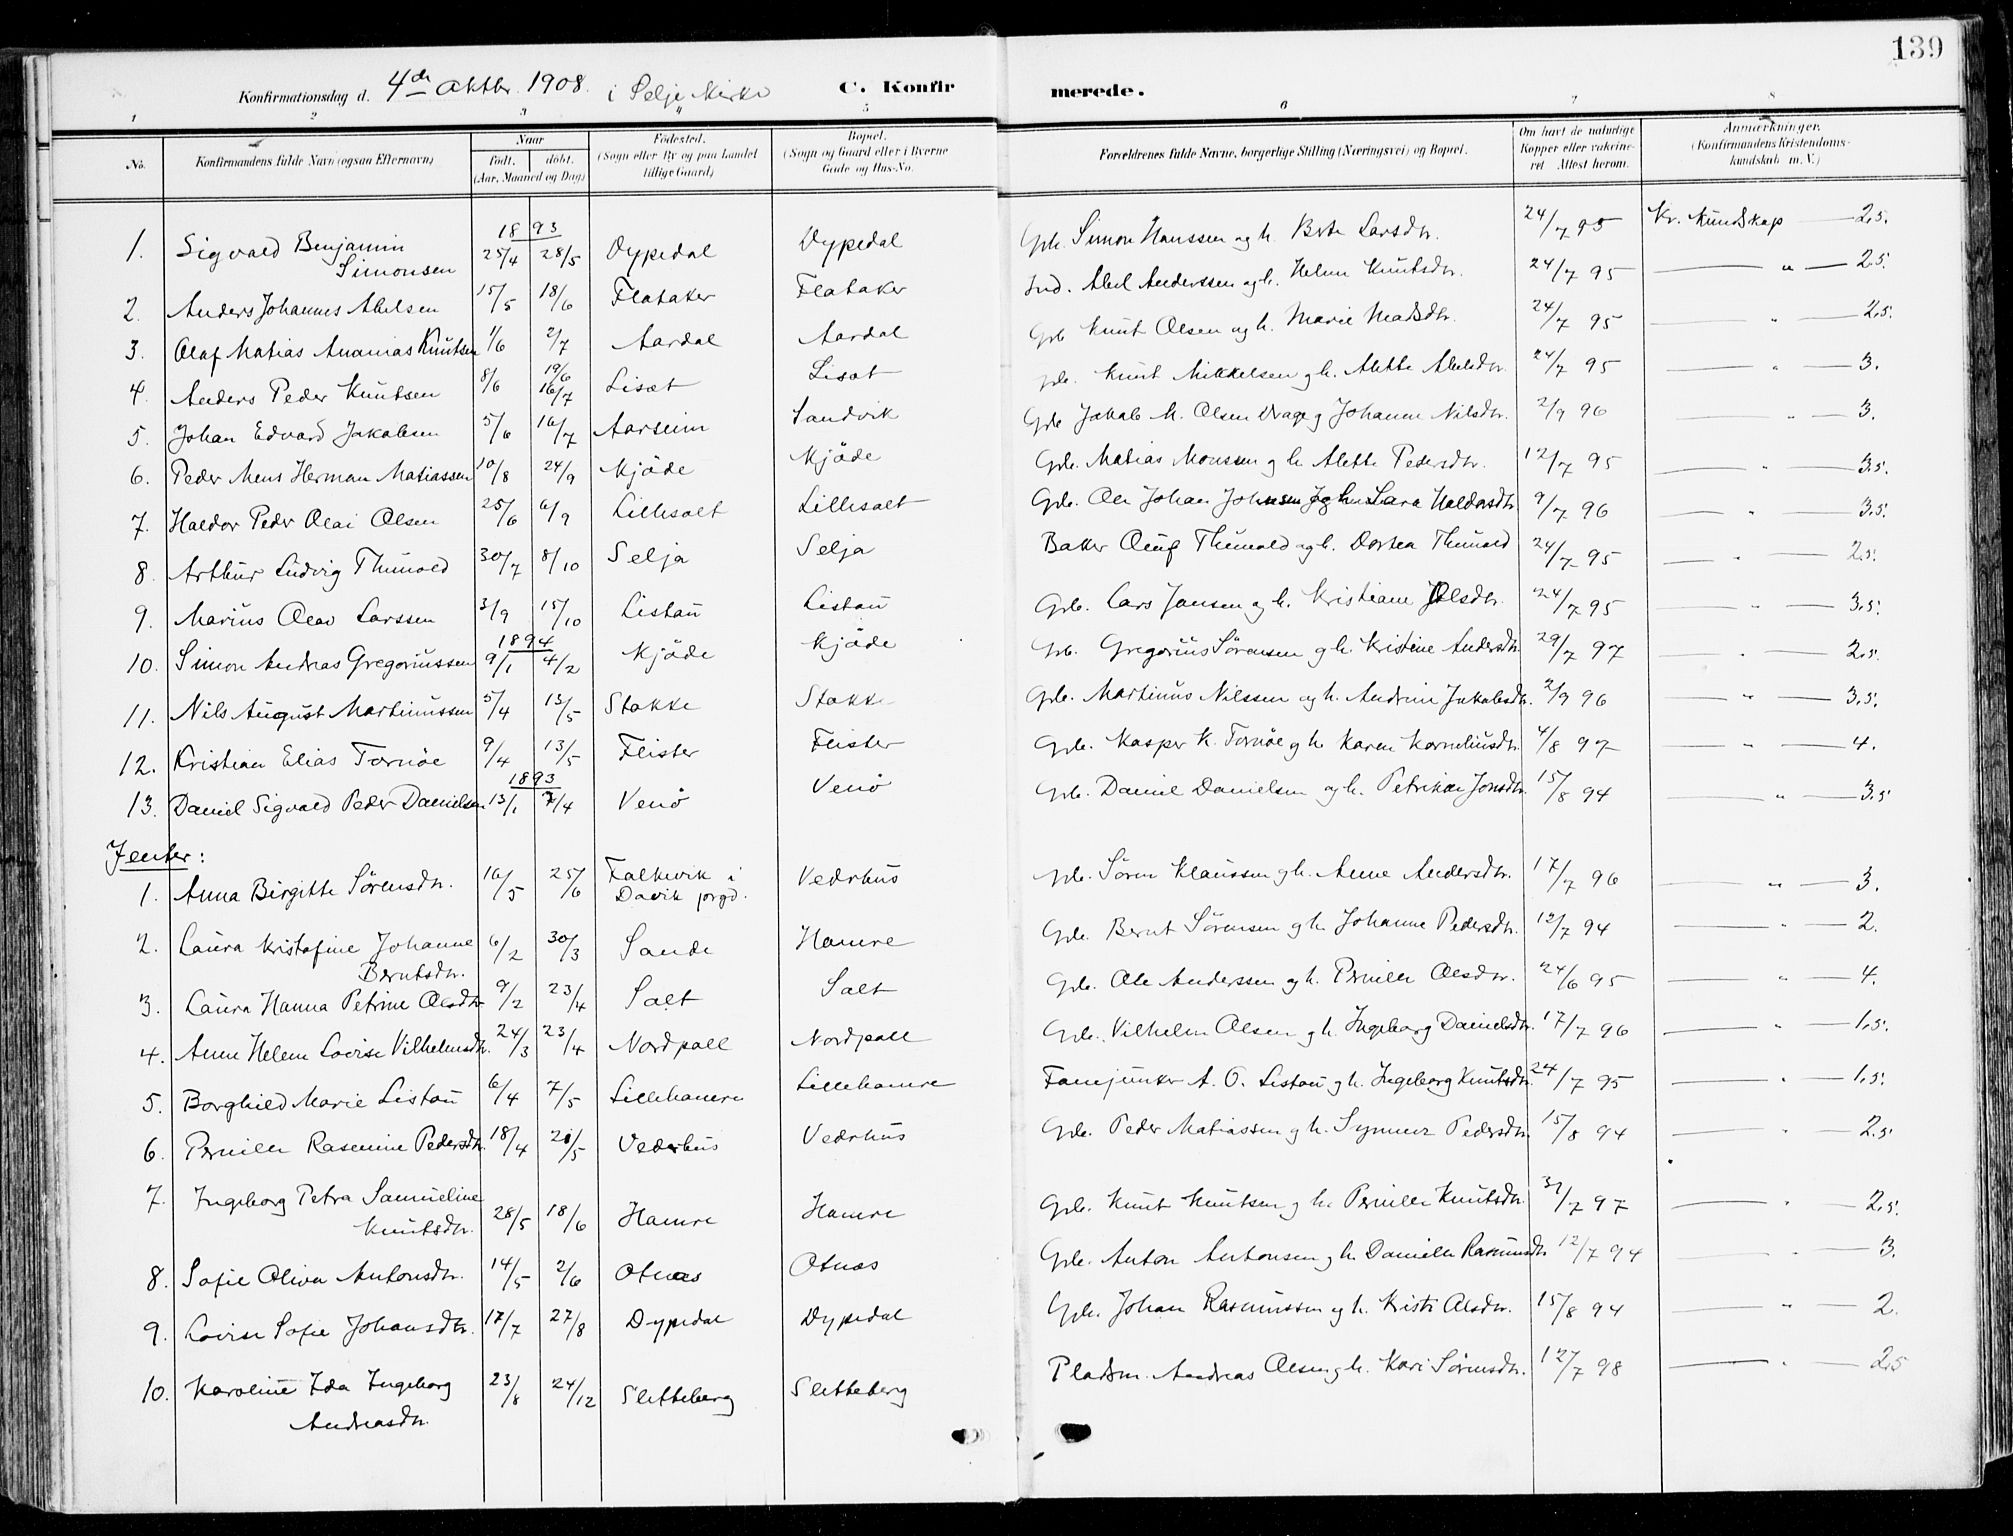 139
Konfirmationsdag d. 4de Oktbr. 1908. i Selje Kirke C. Konfirmerede.
1 2 3 4 5 6 7 8
No. Konfirmandens fulde Navn (ogsaa Efternavn) Naar født. døbt. (Aar, Maaned og Dag) Fødested. (Sogn eller By og paa Landet tillige Gaard) Bopæl. (Sogn og Gaard eller i Byerne Gade og Hus-No. Forældrenes fulde Navne, borgerlige Stilling (Næringsvei) og Bopæl. Om havt de naturlige Kopper eller vaccineret Attest herom. Anmærkninger. (Konfirmandens Kristendomskundskab m. V.)
1893
1. Sigvald Benjamin Simonsen 25/4 28/5 Dypedal Dypedal Gbr. Simon Hanssen og h. Berte Larsdtr. 24/7 95 Kr. Kundskap — 2.5.
2. Anders Johannes Abelsen 15/5 18/6 Flataker Flataker Ind. Abel Anderssen og h. Helene Knutsdtr. 24/7 95 — " — 2.5.
3. Olaf Matias Ananias Knutsen 1/6 2/7 Aardal Aardal Gbr Knut Olsen og h. Marie Madsdtr. 24/7 95 — " — 2.5.
4. Anders Peder Knutsen 8/6 19/6 16/7 Lisæt Lisæt Gbr. Knut Mikkelsen g h. Alette Abelsdtr. 24/7 95 — " — 3.
5. Johan Edvard Jakobsen 5/6 16/7 Aarseim Sandvik Gbr Jakob M. Olsen Drage g Johanne Nilsdtr. 2/9 96 — " — 3.
6. Peder Mons Herman Matiassen 10/8 24/9 Kjøde Kjøde Gbr. Matias Monssen g h Alette Pedersdtr. 12/7 95 — " — 3.5.
7. Haldor Peder Olai Olsen 25/6 6/9 Lillesalt Lillesalt Gbr. Ole Johan Johnsen g h Lara Haldorsdtr 9/7 96 — " — 3.5.
8. Arthur Ludvig Thunold 30/7 8/10 Selja Selja Baker Oluf Thunold og h. Dortea Thunold 24/7 95 — " — 2.5.
9. Marius Olav Larssen 3/9 15/10 Listau Listau Gbr. Lars Jansen og h. Kristiane Olsdtr. 24/7 95 — " — 3.5.
1894
10. Simon Andreas Gregoriussen 9/1 4/2 Kjøde Kjøde Gbr. Gregorius Sørensen g h. Kristine Andersdtr. 29/7 97 — " — 2.5.
11. Nils August Martinussen 5/4 13/5 Stokke Stokke Gbr. Martinus Nilssen og h. Andrine Jakobsdtr. 2/9 96 — " — 3.5.
12. Kristian Elias Tornøe 9/4 13/5 Flister Flister Gbr. Kasper K. Tornøe g h. Karen Korneliusdtr. 4/8 97 — " — 4.
1893
13. Daniel Sigvald Peder Danielsen 13/1 7/4 Venø Venø Gbr. Daniel Danielsen og h. Petrikke Jonsdtr. 15/8 94 — " — 3.5
Jenter:
1. Anna Birgitte Sørensdtr. 16/5 25/6 Falkevik i Davik prgd. Vedrhus Gbr. Søren Klaussen g h. Anne Andersdtr. 17/7 96 — " — 3.
2. Laura Kristofine Johanne Berntsdtr. 6/2 30/3 Sande Hamre Gbr. Bernt Sørensen g h. Johanne Pedersdtr. 12/7 94 — " — 2.
3. Laura Hanna Petrine Olsdtr 9/2 23/4 Salt Salt Gbr. Ole Anderssen og h. Pernille Olsdtr. 24/6 95 — " — 4.
4. Anne Helene Lovise Vilhelmsdtr. 24/3 23/4 Nordpoll Nordpoll Gbr. Vilhelm Olsen g h. Ingeborg Danielsdtr. 17/7 96 — " — 1.5.
5. Borghild Marie Listau 6/4 7/5 Lillehamre Lillehamre Fanejunker A. O. Listau g h. Ingeborg Knutsdtr. 24/7 95 — " — 1.5.
6. Pernille Rasmine Pedersdtr. 18/4 21/5 Vedrhus Vedrhus Gbr. Peder Matiassen g h. Synneve Pedersdtr. 15/8 94 — " — 2.5
7. Ingeborg Petra Samueline Knutsdtr. 28/5 18/6 Hamre Hamre Gbr. Knut Knutsen g h. Pernille Knutsdtr. 31/7 97 — " — 2.5.
8. Sofie Oliva Antonsdtr. 14/5 2/6 Otnes Otnes Gbr. Anton Antonsen g h. Danielle Rasmusdtr 12/7 94 — " — 3.
9. Lovise Sofie Johansdtr. 17/7 27/8 Dypedal Dypedal Gbr. Johan Rasmussen og h. Kristi Olsdtr. 15/8 94 — " — 2.
10. Karoline Ida Ingeborg Andreasdtr. 23/8 24/12 Sletteberg Sletteberg Pladsm. Andreas Olsen g h. Kari Sørensdtr. 12/7 98 — " — 2.5